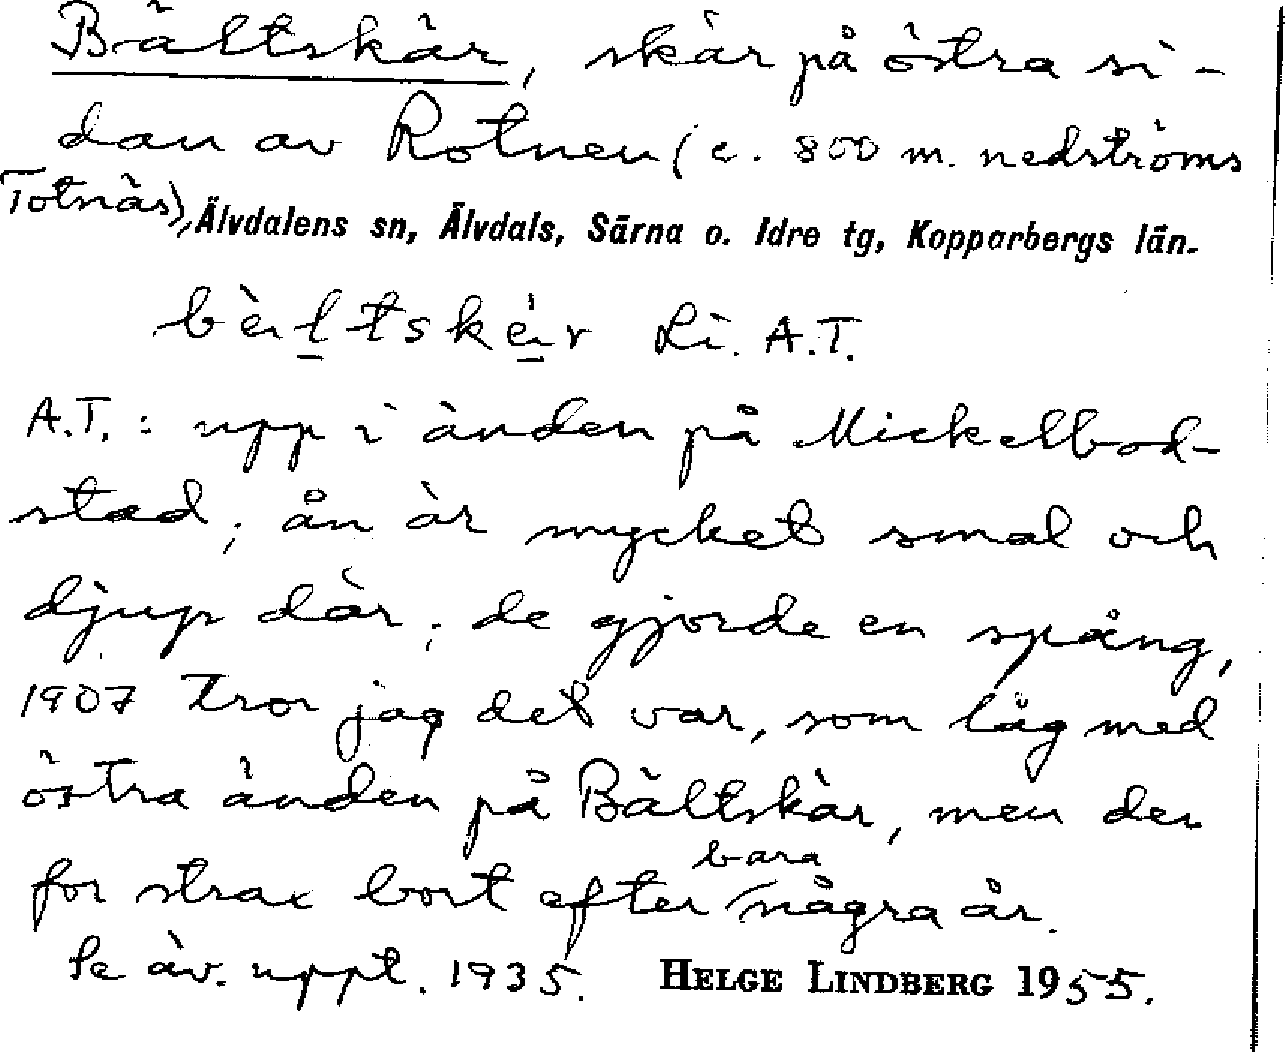 Bältskär, skär på östra si-
dan av Rotnen (c. 800 m. nedströms
Totnäs), Älvdalens sn, Älvdals, Särna o. Idre tg, Kopparbergs län.
Li. A.T.
A.T.: upp i änden på Mickelbod-
stad; ån är mycket smal och
djup där; de gjorde en spång,
1907 tror jag det var, som låg med
östra änden på Bältskär, men den
for strax bort efter bara några år.
Se äv. uppt. 1935. HELGE LINDBERG 1955.